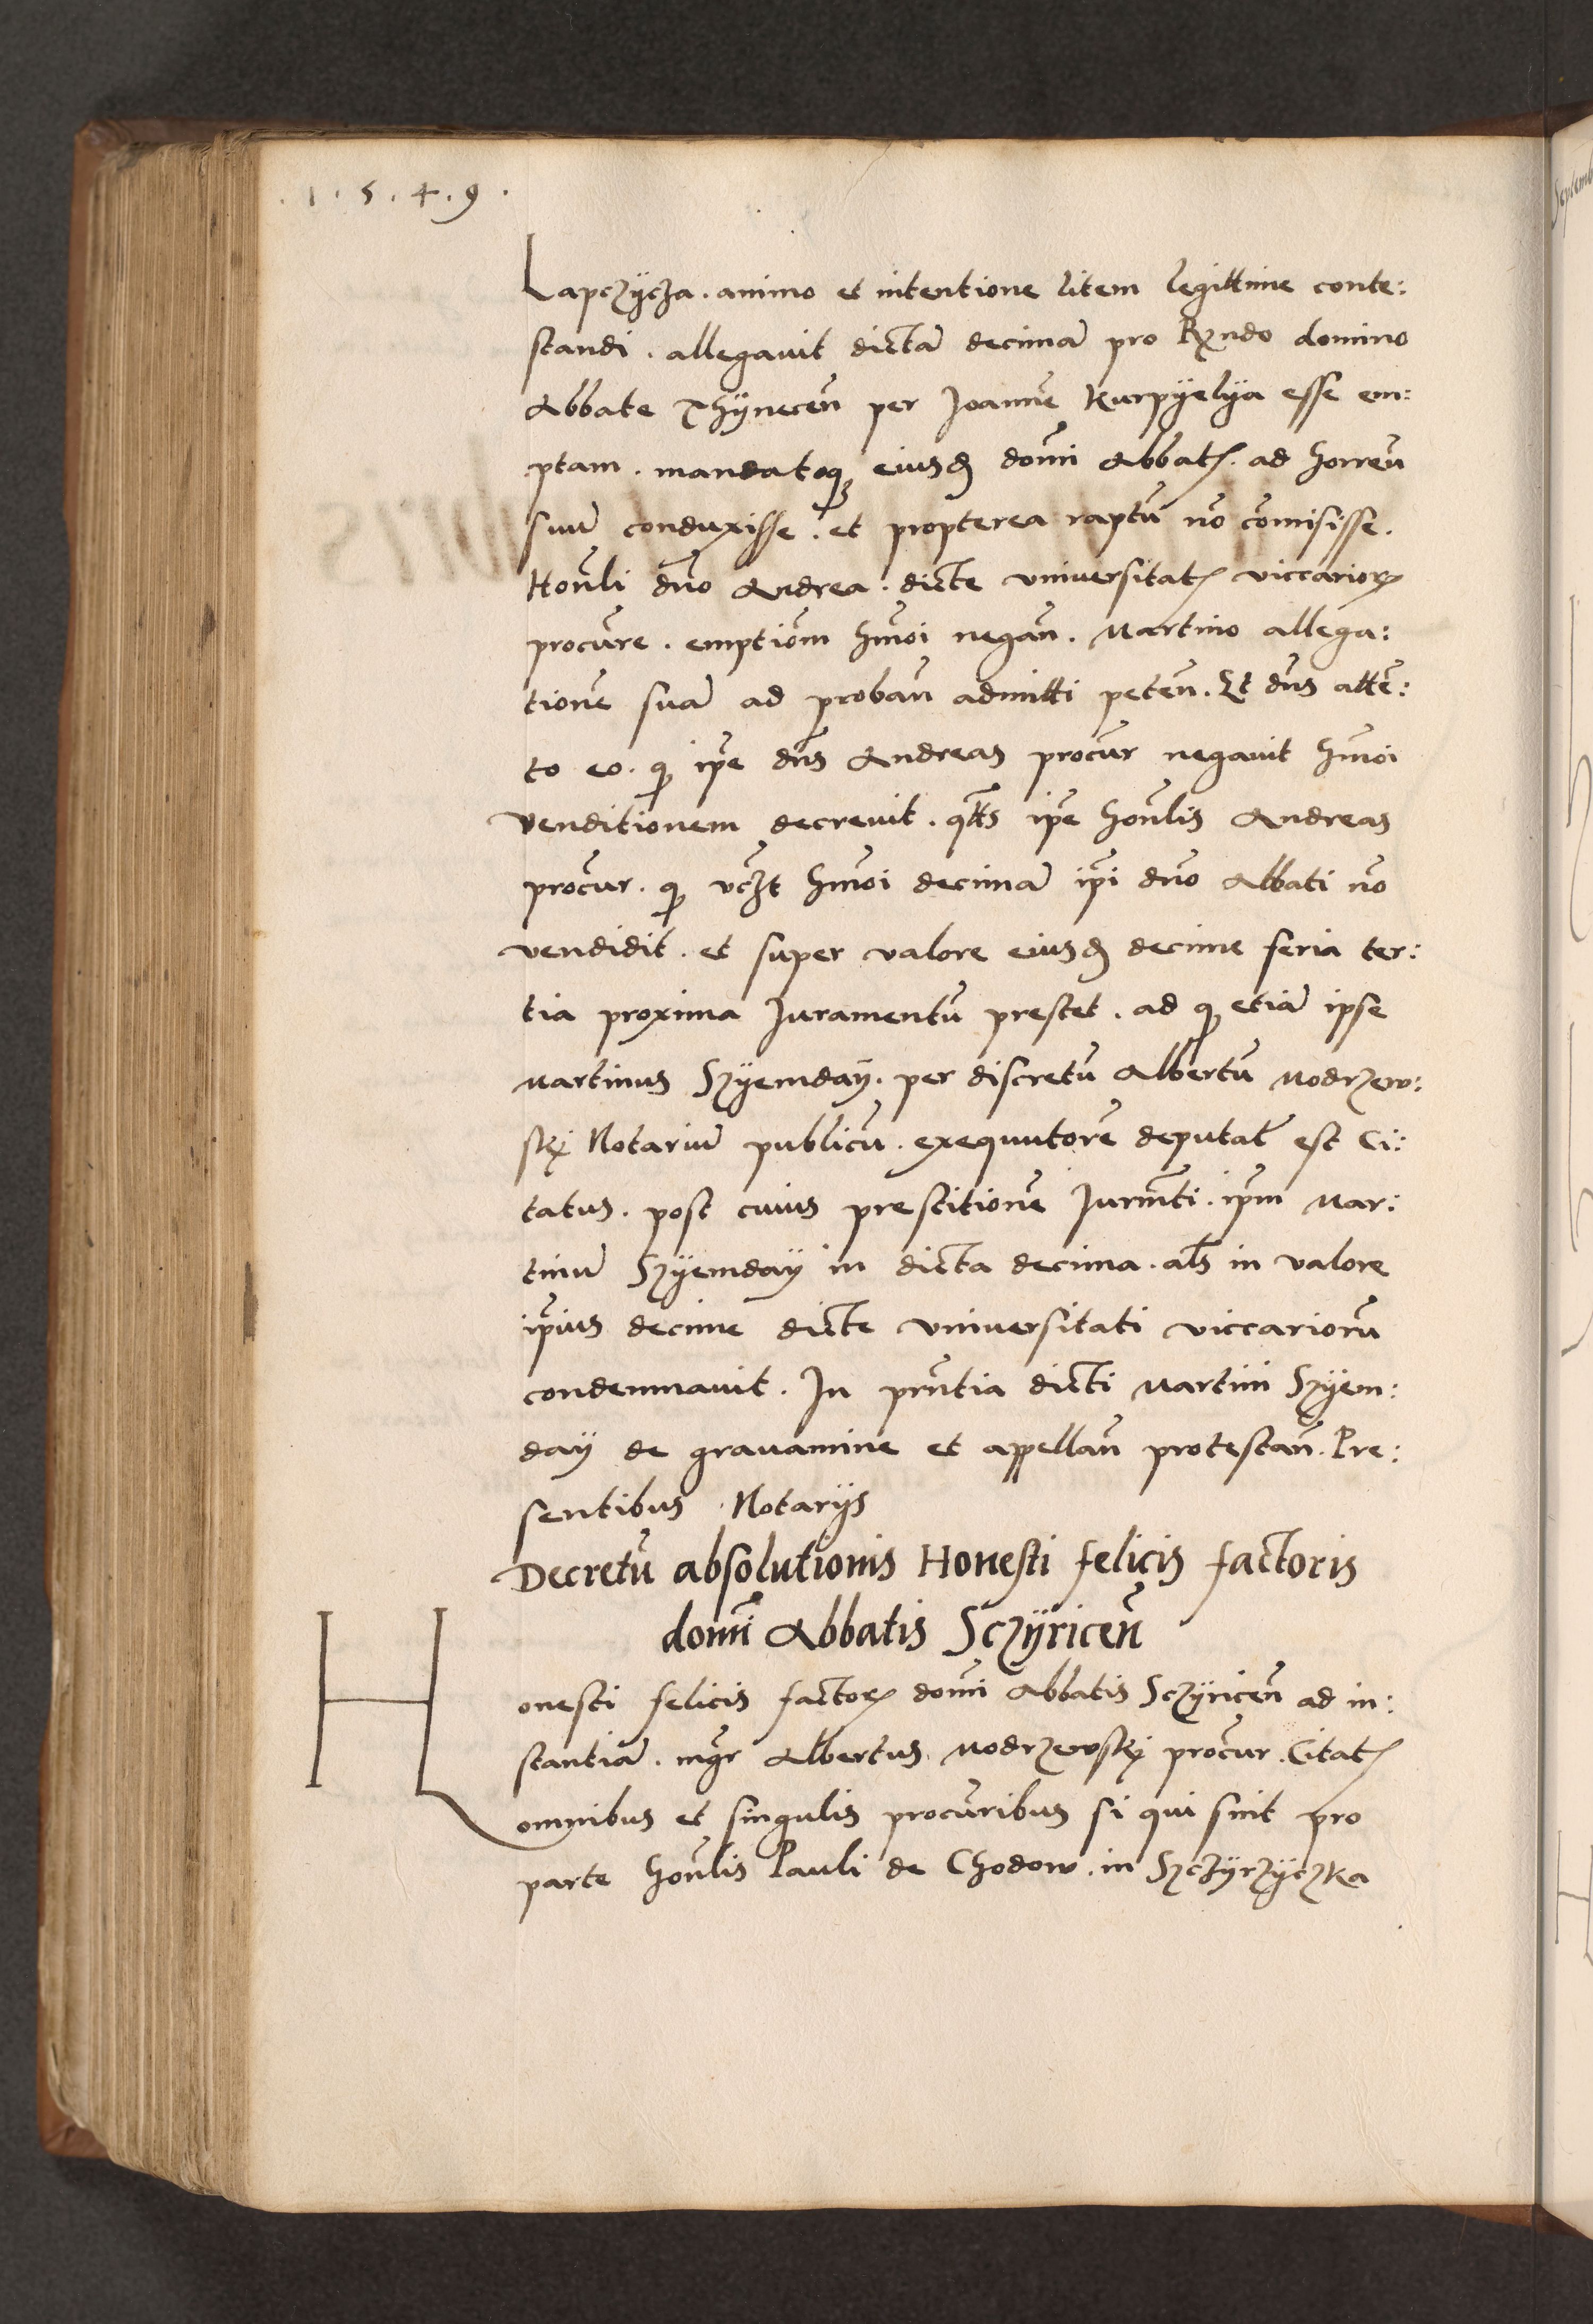 .1.5.4.9.
Lapczÿcza. animo et intentione litem legittime conte:
standi. allegauit dictã decimã pro Rẽndo domino
Abbate Thÿnecen̄ per Joannẽ Kurpÿelÿa esse em:
ptam. mandatoq; eiusd̄ domĩ Abbat̄. ad horreũ
suũ conduxisse. et propterea raptũ nõ cõmisisse.
Hon̄li dño Andrea. dicte vniuersitat̄ viccarior̄
procur̄e. emption̄em hm̄oi negan̄. Martino allega:
tionẽ suã ad proban̄ admitti peten̄. Et dñs attẽ:
to eo. q̄ ip̄e dñs Andreas procur̄ negauit hm̄oi
venditionem decreuit. q̄tts ip̄e hon̄lis Andreas
procur̄. q̄ vcz̃t hm̄oi decimã ip̄i dño Abbati nõ
vendidit. et super valore eiusd̄ decime feria ter:
tia proxima Juramentũ prestet. ad q̄ etiã ipse
Martinus Szÿemdaÿ. per discretũ Albertũ Modrzew:
skj Notariũ publicũ. exequutorẽ deputat̄ est Ci:
tatus. post cuius prestitionẽ Jurm̄ti. ip̄m Mar:
tinũ Szÿemdaÿ in dicta decima. al̄s in valore
ip̄ius decime dicte vniuersitati viccariorũ
condemnauit. In prn̄tia dicti Martini Szÿem:
daÿ de grauamine et appellan̄ protestan̄. Pre:
sentibus Notarijs
Decretũ absolutionis Honesti felicis factoris
domĩ Abbatis Sczÿricen̄
Honesti felicis factor̄ domĩ Abbatis Sczÿricen̄ ad in:
stantiã. mg̃r Albertus Modrzewskj procur̄. Citat̄
omnibus et singulis procur̄ibus si qui sint pro
parte hon̄lis Pauli de Chodow. in Szczÿrzÿczka